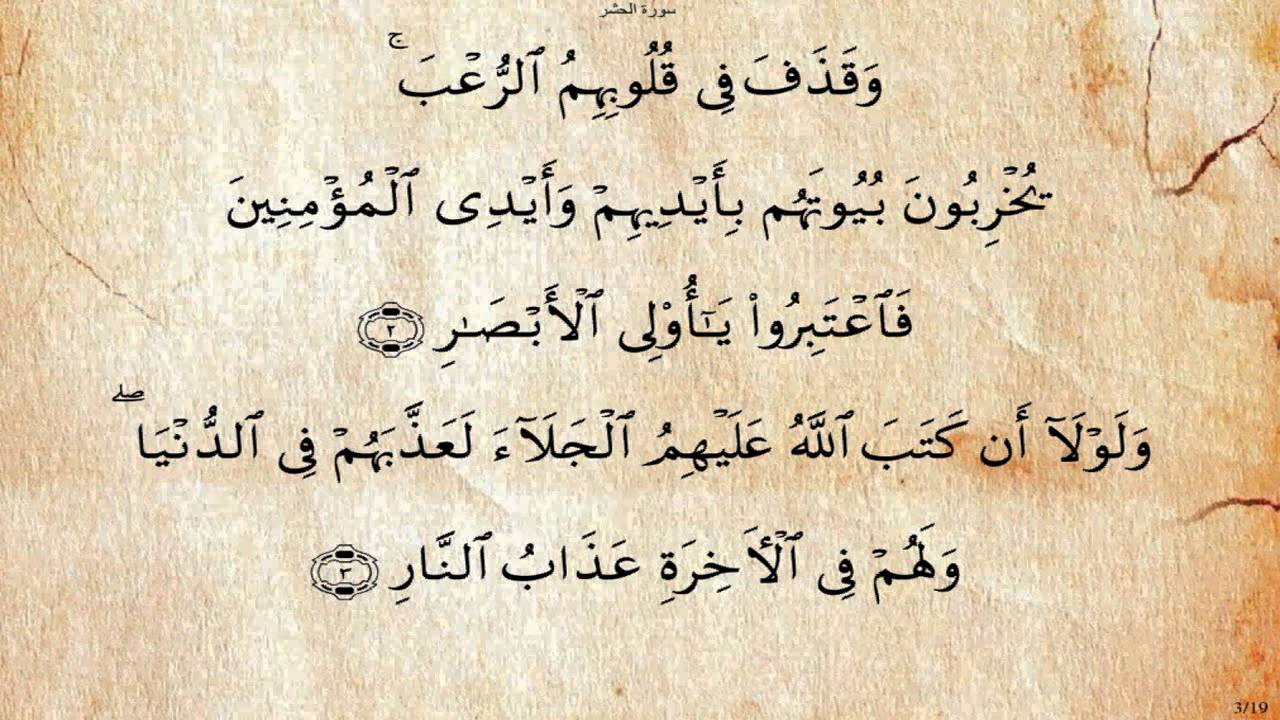 سورة الحشر
وَقَذَفَ فِى قُلُوبِهِمُ ٱلرُّعْبَ ۚ
يُخْرِبُونَ بُيُوتَهُم بِأَيْدِيهِمْ وَأَيْدِى ٱلْمُؤْمِنِينَ
فَٱعْتَبِرُوا۟ يَـٰٓأُو۟لِى ٱلْأَبْصَـٰرِ ٢
وَلَوْلَآ أَن كَتَبَ ٱللَّهُ عَلَيْهِمُ ٱلْجَلَآءَ لَعَذَّبَهُمْ فِى ٱلدُّنْيَا ۖ
وَلَهُمْ فِى ٱلْـَٔاخِرَةِ عَذَابُ ٱلنَّارِ ٣
3/19